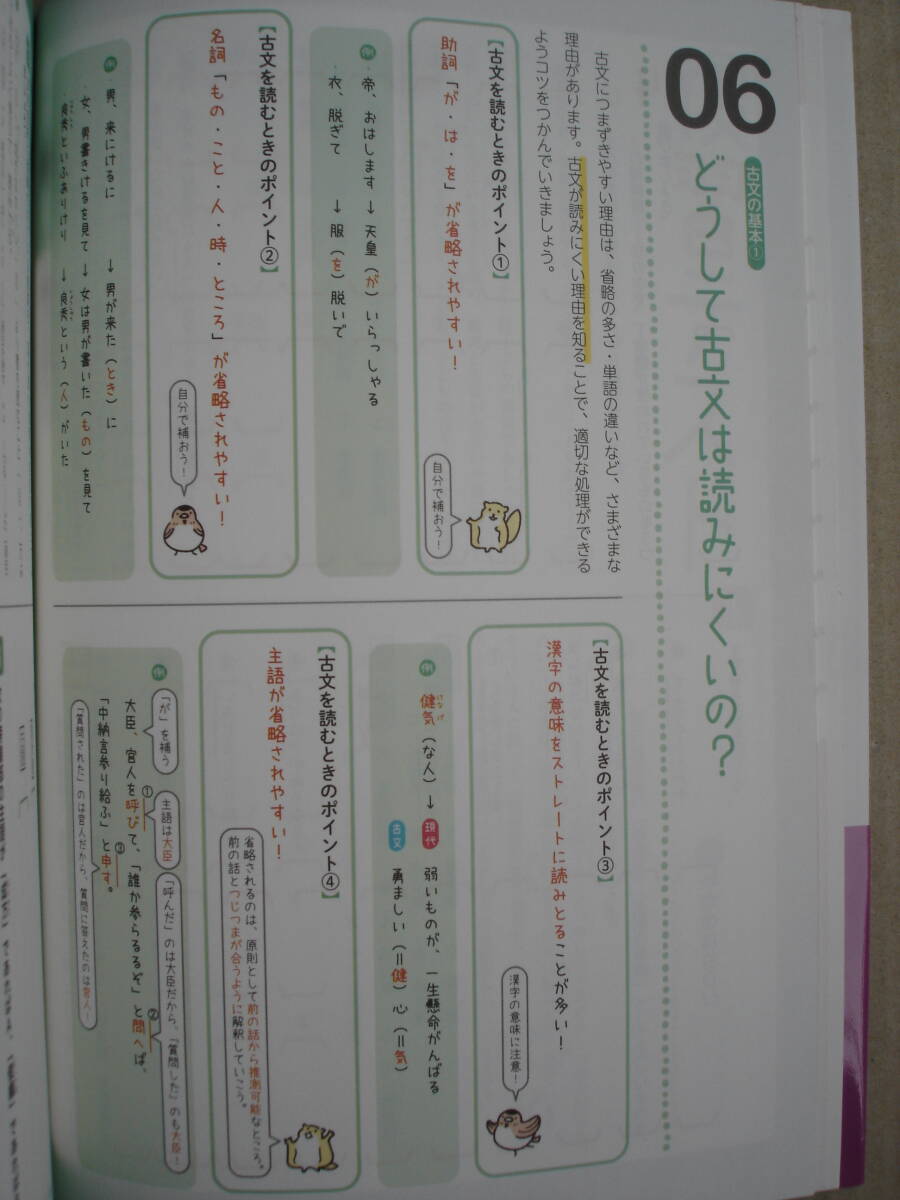 06
古文の基本①
どうして古文は読みにくいの？
古文につまずきやすい理由は、省略の多さ・単語の違いなど、さまざまな
理由があります。古文が読みにくい理由を知ることで、適切な処理ができる
ようコツをつかんでいきましょう。
【古文を読むときのポイント①】
助詞「が・は・を」が省略されやすい！
自分で補おう！
例
帝、おはします → 天皇（が）いらっしゃる
衣、脱ぎて → 服（を）脱いで
【古文を読むときのポイント②】
名詞「もの・こと・人・時・ところ」が省略されやすい！
自分で補おう！
例
男、来にけるに → 男が来た（とき）に
女、男書きけるを見て → 女は男が書いた（もの）を見て
良秀といふありけり → 良秀という（人）がいた
【古文を読むときのポイント③】
漢字の意味をストレートに読みとることが多い！
漢字の意味に注意！
例
健気（な人） → 現代 弱いものが、一生懸命がんばる
けなげ
古文 勇ましい（＝健）心（＝気）
【古文を読むときのポイント④】
主語が省略されやすい！
省略されるのは、原則として前の話から推測可能なところ。
前の話とつじつまが合うように解釈していこう。
例
「が」を補う
主語は大臣
「呼んだ」のは大臣だから、「質問した」のも大臣！
大臣、官人を呼びて、「誰か参らるるぞ」と問へば、
① ②
「中納言参り給ふ」と申す。
③
「質問された」のは官人だから、質問に答えたのは官人！